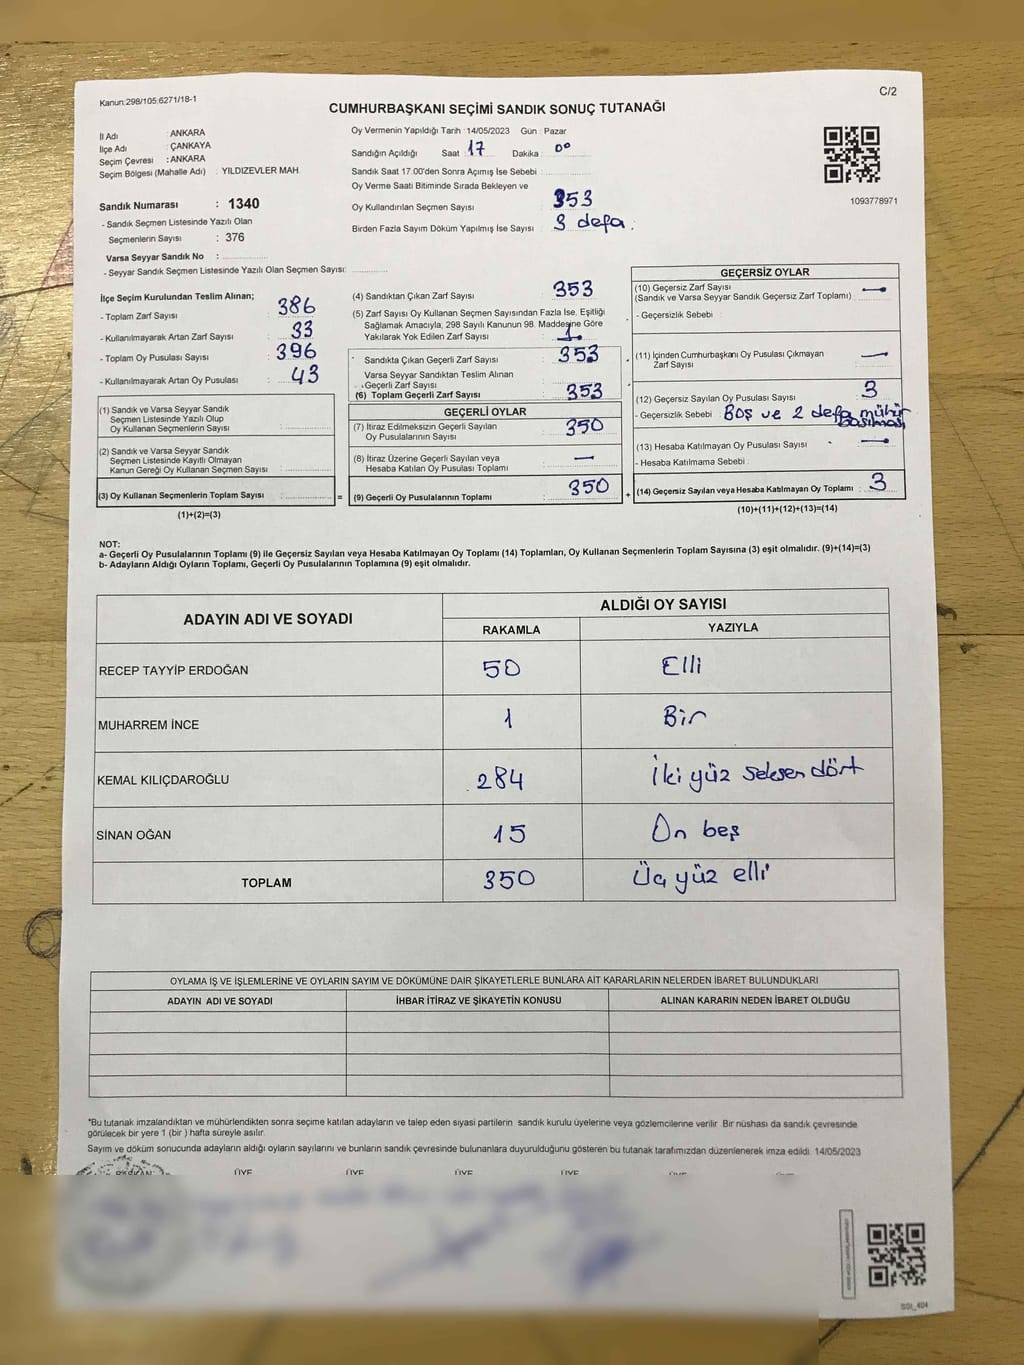 Kanun:298/105.6271/18-1
C/2
CUMHURBAŞKANI SEÇİMİ SANDIK SONUÇ TUTANAĞI
İl Adı : ANKARA
İlçe Adı : ÇANKAYA
Seçim Çevresi : ANKARA
Seçim Bölgesi (Mahalle Adı) : YILDIZEVLER MAH.
Sandık Numarası : 1340
- Sandık Seçmen Listesinde Yazılı Olan
Seçmenlerin Sayısı : 376
Varsa Seyyar Sandık No :
- Seyyar Sandık Seçmen Listesinde Yazılı Olan Seçmen Sayısı:
Oy Vermenin Yapıldığı Tarih : 14/05/2023 Gün : Pazar
Sandığın Açıldığı Saat : 17 Dakika : 00
Sandık Saat 17.00'den Sonra Açımış İse Sebebi :
Oy Verme Saati Bitiminde Sırada Bekleyen ve
Oy Kullandırılan Seçmen Sayısı : 353
Birden Fazla Sayım Döküm Yapılmış İse Sayısı : 3 defa.
1093778971
İlçe Seçim Kurulundan Teslim Alınan;
- Toplam Zarf Sayısı : 386
- Kullanılmayarak Artan Zarf Sayısı : 33
- Toplam Oy Pusulası Sayısı : 396
- Kullanılmayarak Artan Oy Pusulası : 43
(1) Sandık ve Varsa Seyyar Sandık
Seçmen Listesinde Yazılı Olup
Oy Kullanan Seçmenlerin Sayısı :
(2) Sandık ve Varsa Seyyar Sandık
Seçmen Listesinde Kayıtlı Olmayan
Kanun Gereği Oy Kullanan Seçmen Sayısı :
(3) Oy Kullanan Seçmenlerin Toplam Sayısı : =
(1)+(2)=(3)
(4) Sandıktan Çıkan Zarf Sayısı : 353
(5) Zarf Sayısı Oy Kullanan Seçmen Sayısından Fazla İse, Eşitliği
Sağlamak Amacıyla, 298 Sayılı Kanunun 98. Maddesine Göre
Yakılarak Yok Edilen Zarf Sayısı :
Sandıkta Çıkan Geçerli Zarf Sayısı : 353
Varsa Seyyar Sandıktan Teslim Alınan
Geçerli Zarf Sayısı :
(6) Toplam Geçerli Zarf Sayısı : 353
GEÇERLİ OYLAR
(7) İtiraz Edilmeksizin Geçerli Sayılan
Oy Pusulalarının Sayısı : 350
(8) İtiraz Üzerine Geçerli Sayılan veya
Hesaba Katılan Oy Pusulası Toplamı : —
(9) Geçerli Oy Pusulalarının Toplamı : 350 +
GEÇERSİZ OYLAR
(10) Geçersiz Zarf Sayısı : —
(Sandık ve Varsa Seyyar Sandık Geçersiz Zarf Toplamı)
- Geçersizlik Sebebi :
(11) İçinden Cumhurbaşkanı Oy Pusulası Çıkmayan
Zarf Sayısı : —
(12) Geçersiz Sayılan Oy Pusulası Sayısı : 3
- Geçersizlik Sebebi : Boş ve 2 defa mühür
basılması
(13) Hesaba Katılmayan Oy Pusulası Sayısı : —
- Hesaba Katılmama Sebebi :
(14) Geçersiz Sayılan veya Hesaba Katılmayan Oy Toplamı : 3
(10)+(11)+(12)+(13)=(14)
NOT:
a- Geçerli Oy Pusulalarının Toplamı (9) ile Geçersiz Sayılan veya Hesaba Katılmayan Oy Toplamı (14) Toplamları, Oy Kullanan Seçmenlerin Toplam Sayısına (3) eşit olmalıdır. (9)+(14)=(3)
b- Adayların Aldığı Oyların Toplamı, Geçerli Oy Pusulalarının Toplamına (9) eşit olmalıdır.
ADAYIN ADI VE SOYADI
ALDIĞI OY SAYISI
RAKAMLA YAZIYLA
RECEP TAYYİP ERDOĞAN 50 Elli
MUHARREM İNCE 1 Bir
KEMAL KILIÇDAROĞLU 284 İki yüz seksen dört
SİNAN OĞAN 15 On beş
TOPLAM 350 Üç yüz elli
OYLAMA İŞ VE İŞLEMLERİNE VE OYLARIN SAYIM VE DÖKÜMÜNE DAİR ŞİKAYETLERLE BUNLARA AİT KARARLARIN NELERDEN İBARET BULUNDUKLARI
ADAYIN ADI VE SOYADI İHBAR İTİRAZ VE ŞİKAYETİN KONUSU ALINAN KARARIN NEDEN İBARET OLDUĞU
*Bu tutanak imzalandıktan ve mühürlendikten sonra seçime katılan adayların ve talep eden siyasi partilerin sandık kurulu üyelerine veya gözlemcilerine verilir. Bir nüshası da sandık çevresinde
görülecek bir yere 1 (bir) hafta süreyle asılır.
Sayım ve döküm sonucunda adayların aldığı oyların sayılarını ve bunların sandık çevresinde bulunanlara duyurulduğunu gösteren bu tutanak tarafımızdan düzenlenerek imza edildi. 14/05/2023
BAŞKAN ÜYE ÜYE ÜYE ÜYE ÜYE